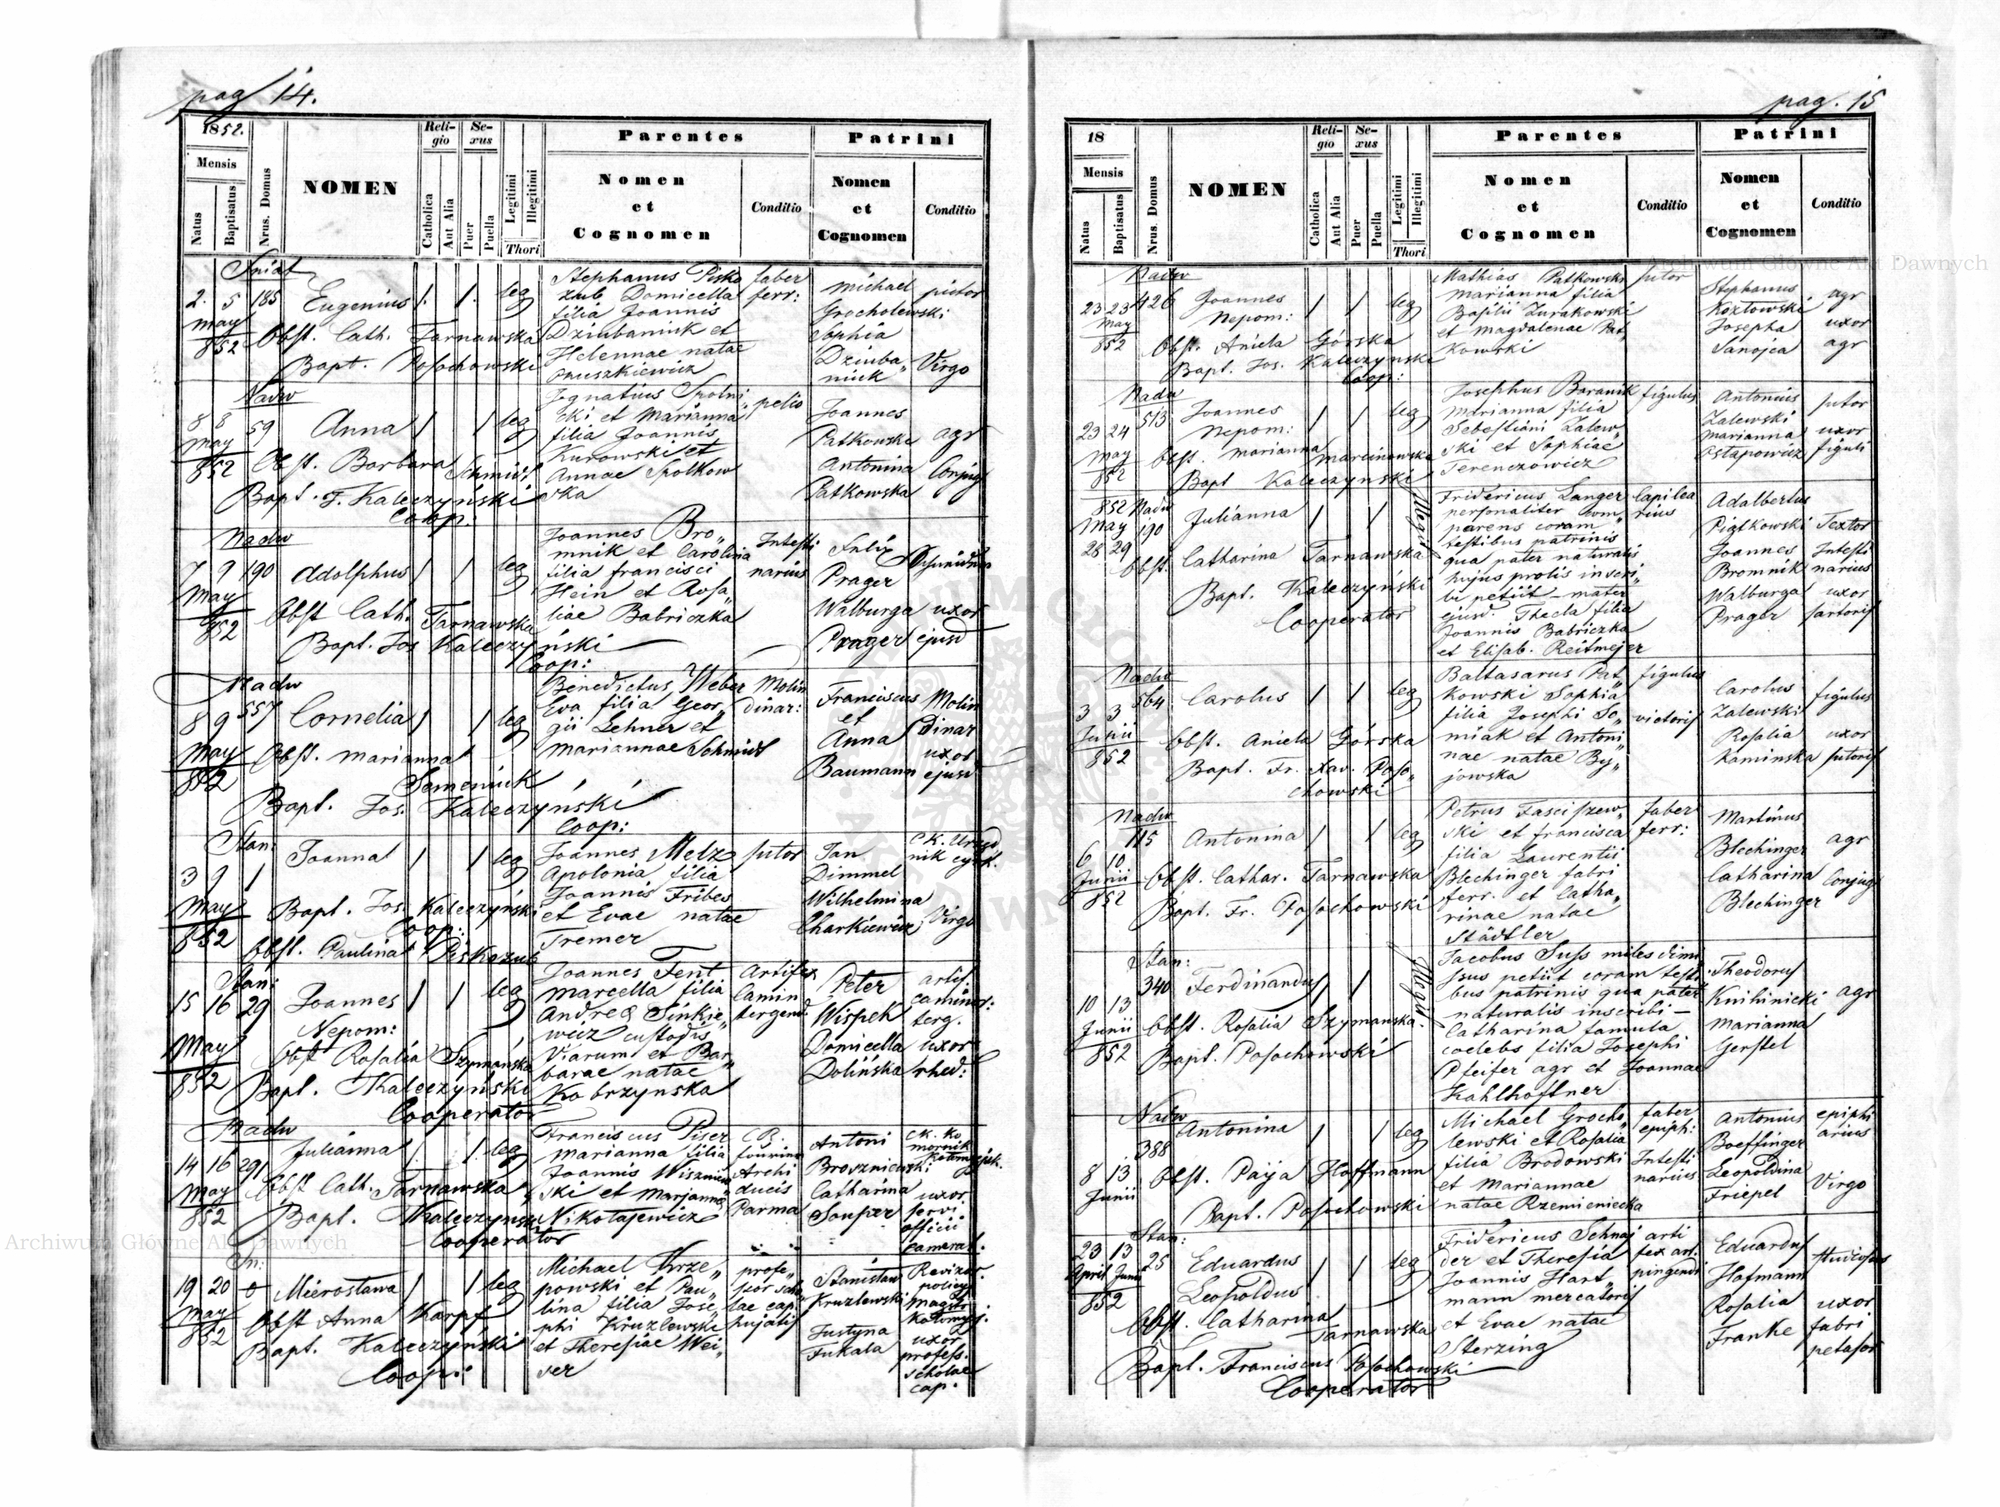 pag 14.
1852.
Mensis
Natus
Baptisatus
Nrus. Domus
NOMEN
Reli-
gio
Catholica
Aut Alia
Se-
xus
Puer
Puella
Legitimi
Illegitimi
Thori
Parentes
Nomen
et
Cognomen
Conditio
Patrini
Nomen
et
Cognomen
Conditio
Sniat
2. 5 185 Eugenius 1. 1. leg
May
852
Obst. Cath. Tarnawska
Bapt. Posochowski
Stephanus Pisko
zub Domicella
filia Joannis
Dziubaniuk et
Helennae natae
Onuszkiewicz
faber
ferr:
Michael
Grocholewski
Sophia
Dziuba„
niuk
pictor
Virgo
Nadw
8 8 59 Anna 1 1 leg
May
852
Obst. Barbara Schmidt
Bapt. J. Kaleczyński
Coop:
Ignatius Spolni„
ski et Marianna
filia Joannis
Kurowski et
Annae Spolkow
ska
pelio
Joannes
Patkowski
Antonina
Patkowska
agr
Conjug
Nadw
7 9 190 Adolphus 1 1 leg
May
852
Obst Cath. Tarnawska
Bapt. Jos Kaleczyński
Coop:
Joannes Bro„
mnik et Carolina
filia francisci
Hein et Rosa„
liae Babriczka
Intesti
narius
Felix
Prager
Walburga
Prager
uxor
ejusd
Nadw
8 9 557 Cornelia 1 1 leg
May
852
Obst. Marianna
Semeniuk
Bapt. Jos. Kaleczyński
Coop:
Benedictus Weber
Eva filia Geor„
gii Lehner et
Mariannae Schmidt
Molin
dinar:
Franciscus
et
Anna
Baumann
Molin
dinar
uxor
ejusd
Stan:
3 9 1 Joanna 1 1 leg
May
852
Bapt. Jos. Kaleczyński
Coop:
Obst. Paulina Piskozub
Joannes Melz
Apolonia filia
Joannis Fribes
et Evae natae
Tremer
sutor
Jan
Dimmel
Wilhelmina
Charkiewicz
CK. Urzęd
nik cyrk.
Virgo
Stan:
15 16 29 Joannes 1 1 leg
Nepom:
May
852
Obst Rosalia Szymańska
Bapt. Kaleczyński
Cooperator
Joannes Fent
Marcella filia
Andreas Sinkie„
wicz custodis
Viarum et Bar„
barae natae
Kobrzynska
Artifex
Camin
tergend:
Peter
Wispek
Domicella
Dolińska
artif
caminor:
terg.
uxor
rhed:
Nadw
14 16 291 Julianna 1 1 leg
May
852
Obst Cath. Tarnawska
Bapt. Kaleczyński
Cooperator
Franciscus Piser
Marianna filia
Joannis Wiszniew
ski et Marjannae
Nikołajewicz
Archi
ducis
Parma
Antoni
Broszniewski:
Catharina
Souper
CK. Ko
mornik
uxor
servi.
officii
cameral.
19 20 Mierosława 1 1 leg
May
852
Obst Anna Karpf
Bapt. Kaleczyński
Coop:
Michael Krze„
powski et Pau„
lina filia Jose„
phi Kruzlewski
et Theresiae Wei„
ser
profe„
sor scho
lae cap„
hujatis
Stanisław
Kruzlewski
Justyna
Fukala
Revizor.
policyi
magistr
Kołomyj.
uxor
profess.
scholae
cap.
pag. 15
18
Mensis
Natus
Baptisatus
Nrus. Domus
NOMEN
Reli-
gio
Catholica
Aut Alia
Se-
xus
Puer
Puella
Legitimi
Illegitimi
Thori
Parentes
Nomen
et
Cognomen
Conditio
Patrini
Nomen
et
Cognomen
Conditio
Nadw
23 23 426 Joannes 1 1 leg
Nepom:
May
852
Obst. Aniela Górska
Bapt. Jos. Kaleczynski
Coop:
Mathias Patkowski
Marianna filia
Basilii Zurakowski
et Magdalenae Pat„
kowski
sutor
Stephanus
Kozłowski
Josepha
Sanojca
agr
uxor
agr
Nadw
23 24 513 Joannes 1 1 leg
Nepom:
May
852
Obst. Marianna Marcinowska
Bapt Kaleczyński
Josephus Baranik
Marianna filia
Sebestiani Zalew„
ski et Sophiae
Terenczowicz
figulus
Antonius
Zalewski
Marianna
Ostapowicz
sutor
uxor
figuli
852 Nadw
May 190 Julianna 1 1 Illegit
28 29
Obst. Catharina Tarnawska
Bapt. Kaleczyński
Cooperator
Fridericus Langer
personaliter Com„
parens coram
testibus patrinis
qua pater naturalis
hujus prolis inscri„
bi petiit – mater
ejusd. Thecla filia
Joannis Babriczka
et Elisab. Reitmejer
Capilea
rius
Adalbertus
Piątkowski
Joannes
Bromnik
Walburga
Prager
Textor
Intesti
narius
uxor
sartoris
Nadw
3 3 564 Carolus 1 1 leg
Junii
852
Obst. Aniela Górska
Bapt. Fr. Xav. Poso„
chowski
Baltasarus Pat„
kowski Sophia
filia Josephi Se„
miak et Antoni„
nae natae By„
jowska
figulus
victoris
Carolus
Zalewski
Rosalia
Kaminska
figulus
uxor
sutoris
Nadw
6 10 115 Antonina 1 1 leg
Junii
852
Obst. Cathar. Tarnawska
Bapt. Fr. Posochowski
Petrus Jasciszew„
ski et francisca
filia Laurentii
Blechinger fabri
ferr. et Catha„
rinae natae
Städtler
faber
ferr:
Martinus
Blechinger
Catharina
Blechinger
agr
Conjug
Stan:
10 13 340 Ferdinandus 1 1 Illegit
Junii
852
Obst. Rosalia Szymanska.
Bapt. Posochowski
Jacobus Suss miles dimi
ssus petiit coram testi
bus patrinis qua pater
naturalis inscribi –
Catharina famula
coelebs filia Josephi
Pfeifer agr et Joannae
Kahlhoffner
Theodorus
Knihinicki
Marianna
Gerstel
agr
Nadw
8 13 388 Antonina 1 1 leg
Junii
Obst. Paija Hoffmann
Bapt. Posochowski
Michael Grocho„
lewski et Rosalia
filia Brodowski
et Mariannae
natae Rzemieniecka
faber
epiph:
Intesti
narius
Antonius
Boeffinger
Leopoldina
Friepel
epiphi
arius
Virgo
Stan:
23 13 25 Eduardus 1 1 leg
Leopoldus
April Junii
852
Obst. Catharina
Tarnawska
Bapt. Franciscus Posochowski
Cooperator
Fridericus Schnaj
der et Theresia
Joannis Hart„
mann mercatoris
et Evae natae
Sterzing
arti
fex art.
pingendi
Eduardus
Hofmann
Rosalia
Franke
studiosus
uxor
fabri
petasor
Archiwum Główne Akt Dawnych
Archiwum Główne Akt Dawnych